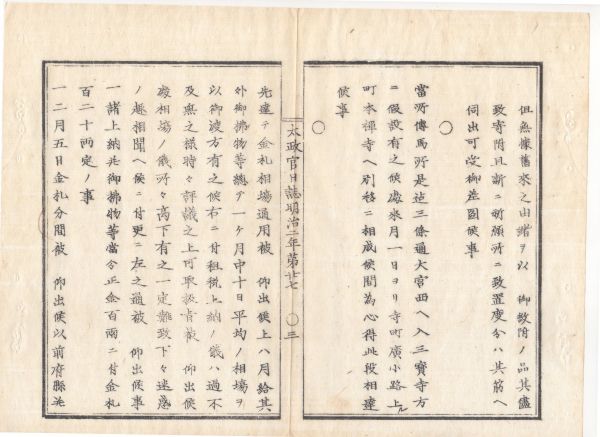 但無據舊來之由緒ヲ以 御敎附ノ品其儘
致寄附且新ニ祈願所ニ致置度分ハ其筋ヘ
伺出可受御差圖候事
○
當所傳馬所是迠三條通大宮西ヘ入三寶寺方
ニ假設有之候處來月一日ヨリ寺町廣小路上ル
町本禪寺ヘ引移ニ相成候間為心得此段相達
候事
○
太政官日誌明治二年第廿七 ○ 三
先達テ金札相場通用被 仰出候上ハ月給其
外御拂物等總テ一ケ月中十日平均ノ相場ヲ
以御渡方有之候右ニ付租稅上納ノ儀ハ過不
及無之樣時々評議之上可取扱旨被 仰出候
處相場ノ儀所々高下有之一定難致下々迷惑
ノ趣相聞ヘ候ニ付更ニ左之通被 仰出候事
一諸上納幷御拂物等當今正金百兩ニ付金札
百二十兩定ノ事
一二月五日金札分間被 仰出候以前府縣幷